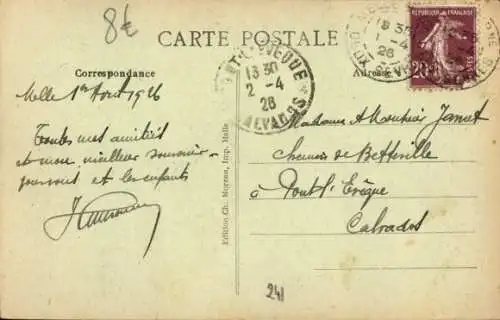 8€
CARTE POSTALE
Correspondance
Adresse
RÉPUBLIQUE FRANÇAISE
20
18 30
1 -4
26
PONT-L'EVEQUE
13 30
2 -4
26
CALVADOS
Melle 1er Avril 1926
Toutes mes amitiés
et mon meilleur souvenir
pour vous et les enfants
Madame & Monsieur Jamet
Chemin de Betteville
à Pont l'Evêque
Calvados
Edition Ch. Moreau, Imp. Melle
241